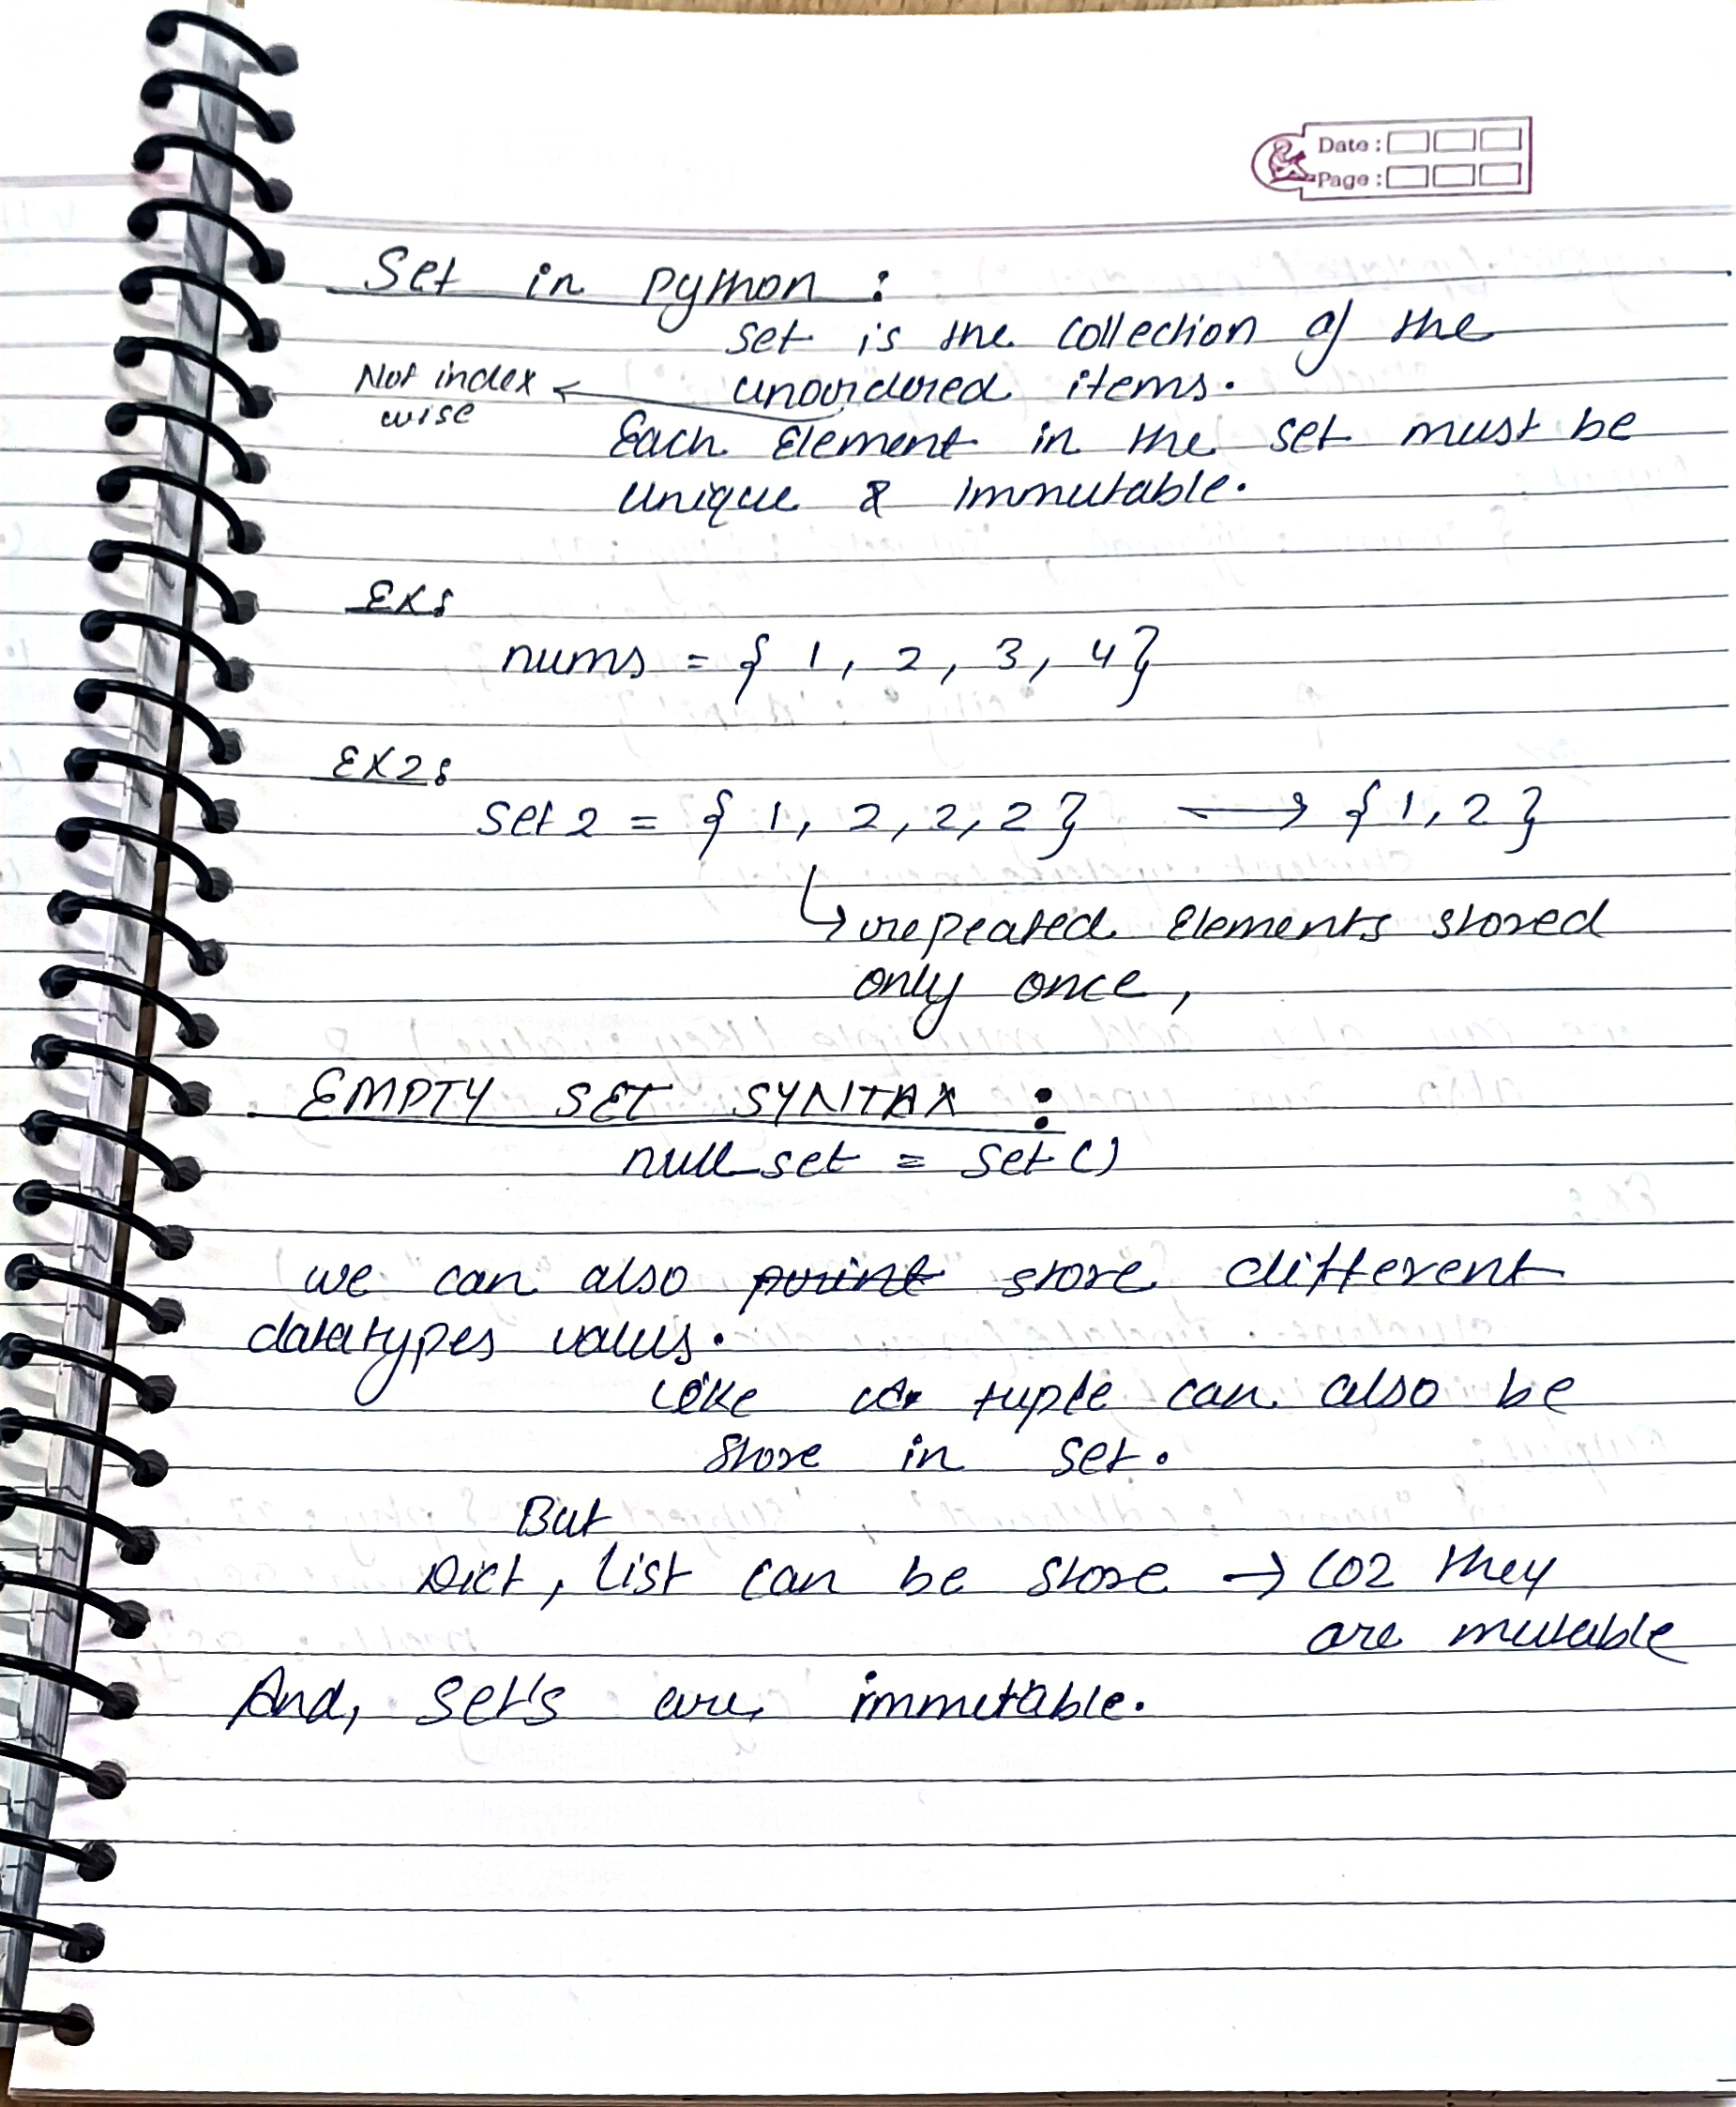 Date :
Page :
Set in Python :
set is the collection of the
Not index
wise
unordered items.
Each Element in the set must be
unique & immutable.
EX:
nums = { 1, 2, 3, 4}
EX2:
set 2 = { 1, 2, 2, 2 } → { 1, 2 }
↳ repeated Elements stored
only once,
EMPTY SET SYNTAX :
null_set = set ()
we can also print store different
datatypes values.
Like a tuple can also be
store in set.
But
Dict, List can be store → COZ they
are mutable
And, set's are immutable.